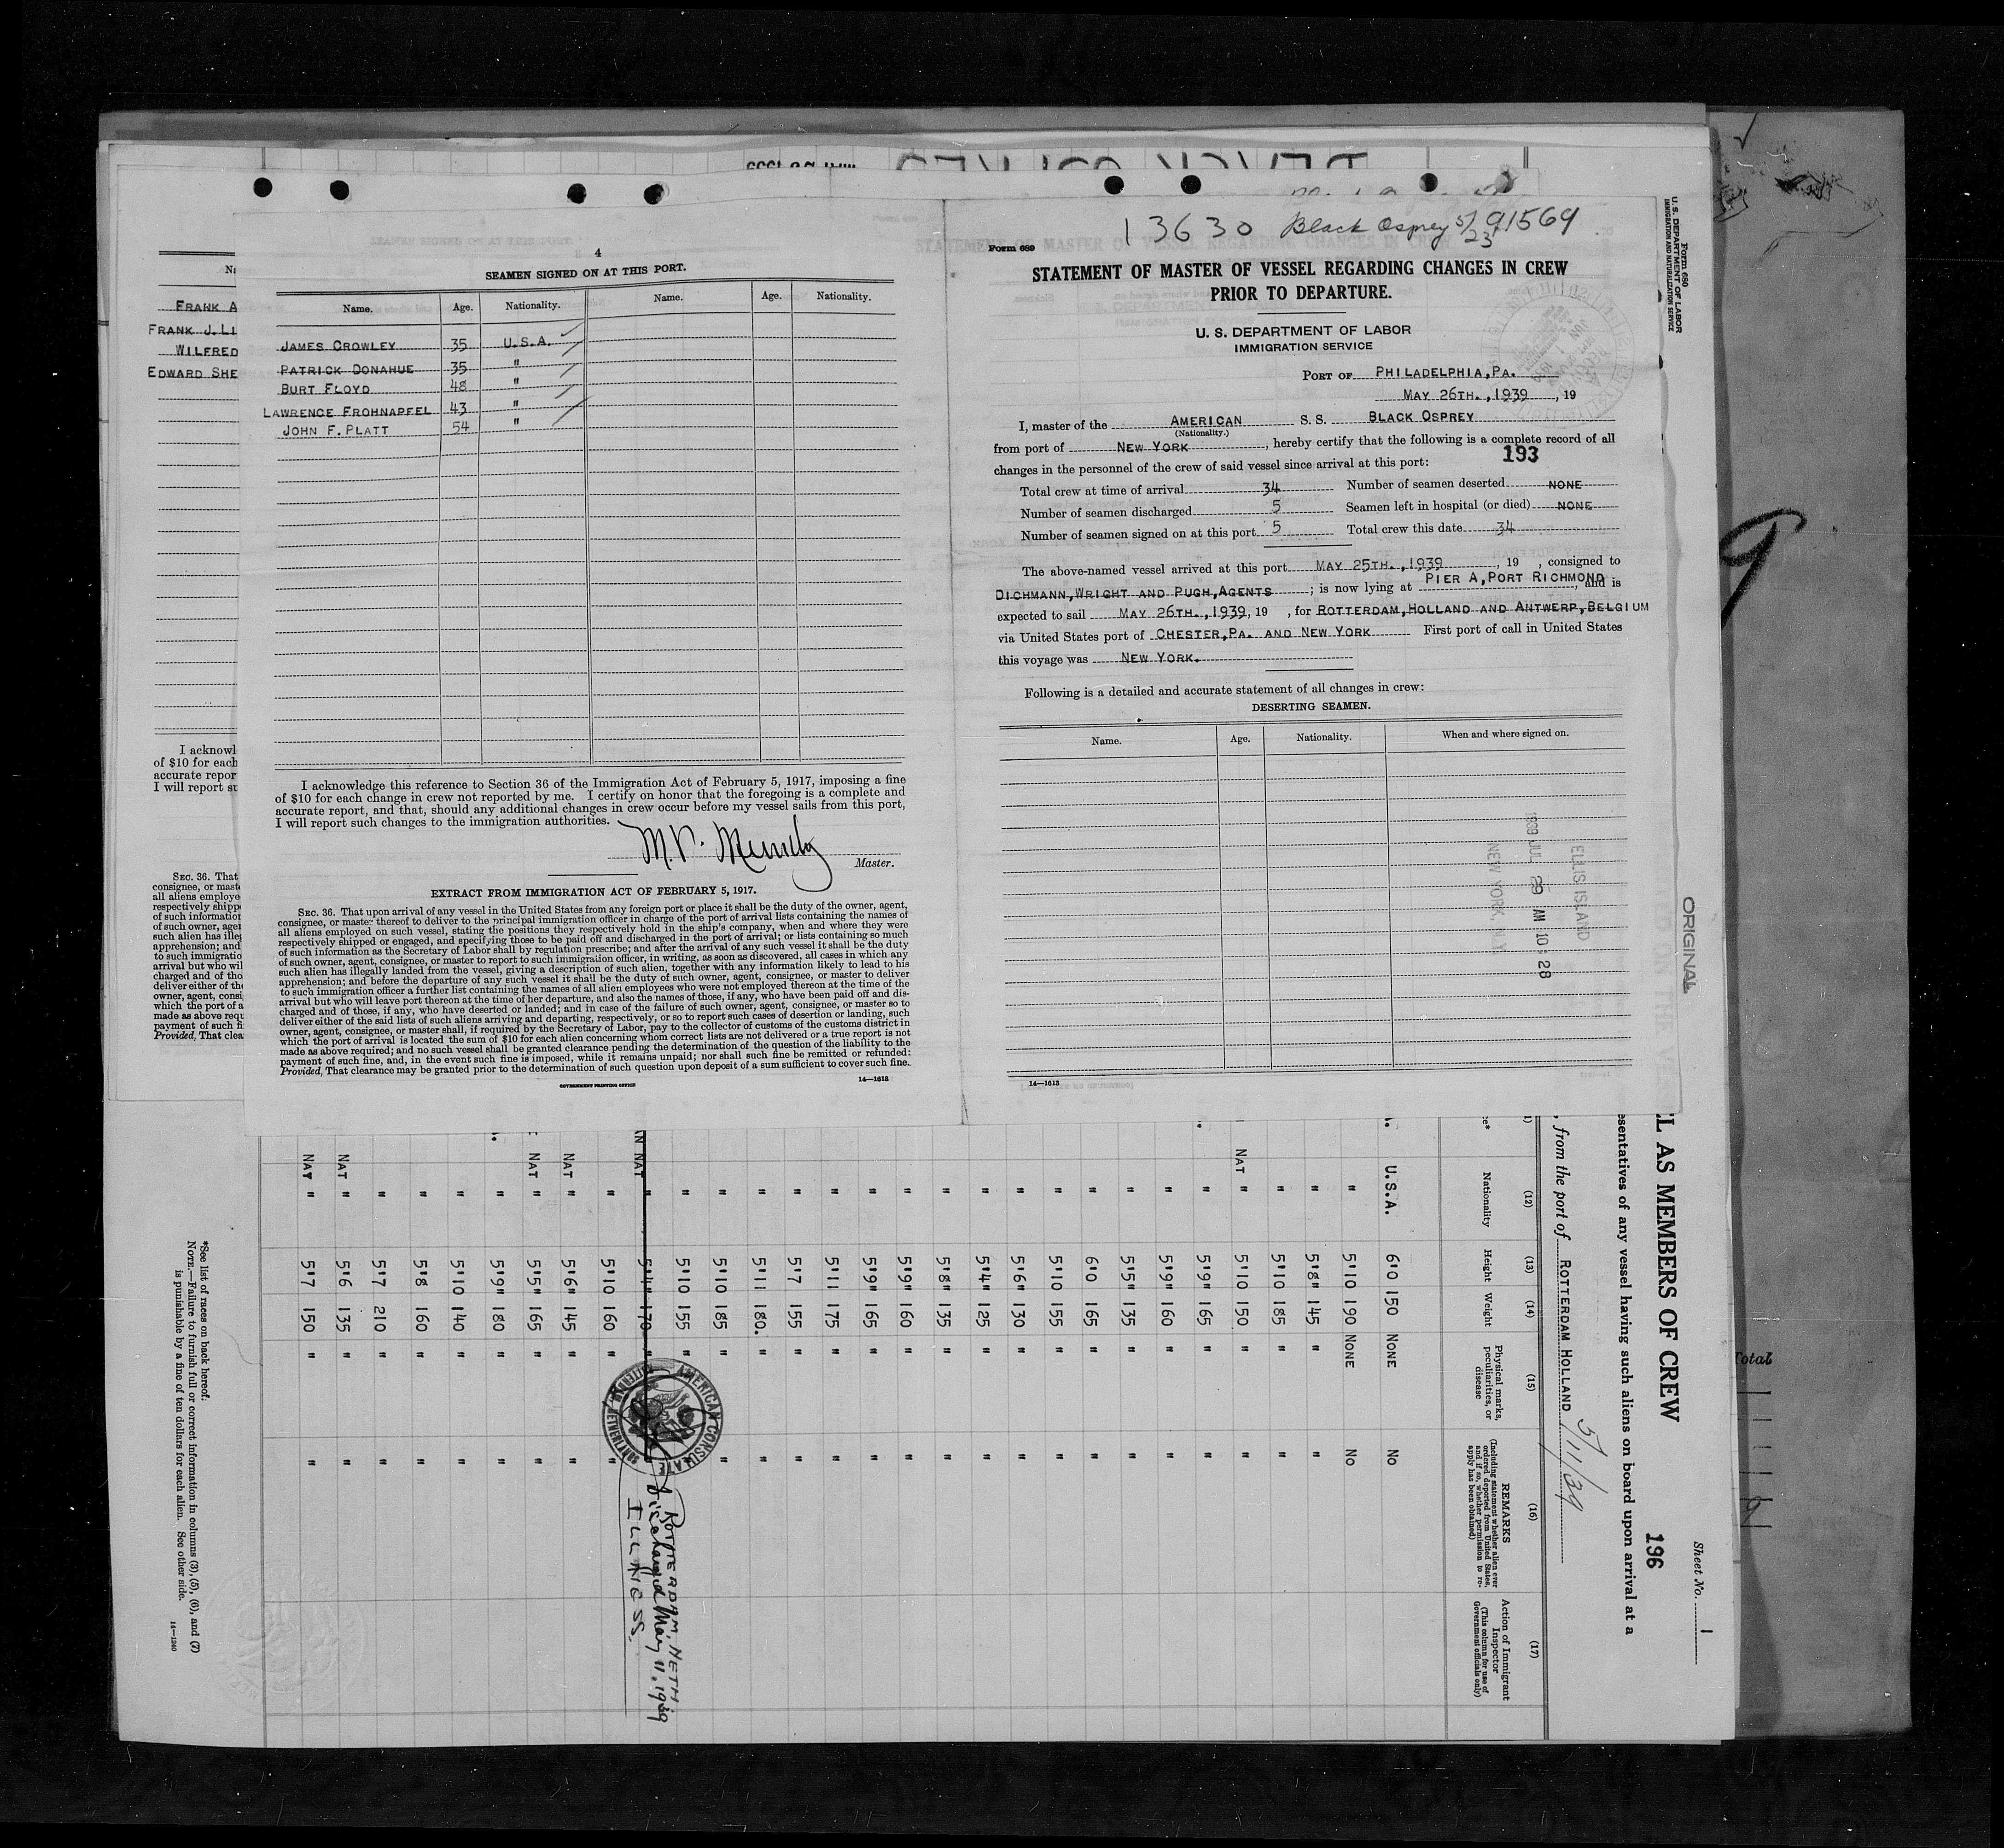 4
SEAMEN SIGNED ON AT THIS PORT.
Name. Age. Nationality. Name. Age. Nationality.
JAMES CROWLEY 35 U.S.A.
PATRICK DONAHUE 35 "
BURT FLOYD 48 "
LAWRENCE FROHNAPFEL 43 "
JOHN F. PLATT 54 "
I acknowledge this reference to Section 36 of the Immigration Act of February 5, 1917, imposing a fine
of $10 for each change in crew not reported by me. I certify on honor that the foregoing is a complete and
accurate report, and that, should any additional changes in crew occur before my vessel sails from this port,
I will report such changes to the immigration authorities.
Master.
EXTRACT FROM IMMIGRATION ACT OF FEBRUARY 5, 1917.
SEC. 36. That upon arrival of any vessel in the United States from any foreign port or place it shall be the duty of the owner, agent,
consignee, or master thereof to deliver to the principal immigration officer in charge of the port of arrival lists containing the names of
all aliens employed on such vessel, stating the positions they respectively hold in the ship's company, when and where they were
respectively shipped or engaged, and specifying those to be paid off and discharged in the port of arrival; or lists containing so much
of such information as the Secretary of Labor shall by regulation prescribe; and after the arrival of any such vessel it shall be the duty
of such owner, agent, consignee, or master to report to such immigration officer, in writing, as soon as discovered, all cases in which any
such alien has illegally landed from the vessel, giving a description of such alien, together with any information likely to lead to his
apprehension; and before the departure of any such vessel it shall be the duty of such owner, agent, consignee, or master to deliver
to such immigration officer a further list containing the names of all alien employees who were not employed thereon at the time of the
arrival but who will leave port thereon at the time of her departure, and also the names of those, if any, who have been paid off and dis-
charged and of those, if any, who have deserted or landed; and in case of the failure of such owner, agent, consignee, or master so to
deliver either of the said lists of such aliens arriving and departing, respectively, or so to report such cases of desertion or landing, such
owner, agent, consignee, or master shall, if required by the Secretary of Labor, pay to the collector of customs of the customs district in
which the port of arrival is located the sum of $10 for each alien concerning whom correct lists are not delivered or a true report is not
made as above required; and no such vessel shall be granted clearance pending the determination of the question of the liability to the
payment of such fine, and, in the event such fine is imposed, while it remains unpaid; nor shall such fine be remitted or refunded:
Provided, That clearance may be granted prior to the determination of such question upon deposit of a sum sufficient to cover such fine.
GOVERNMENT PRINTING OFFICE 14—1613
13630 Black Osprey 5/23 91569
Form 689
STATEMENT OF MASTER OF VESSEL REGARDING CHANGES IN CREW
PRIOR TO DEPARTURE.
U. S. DEPARTMENT OF LABOR
IMMIGRATION SERVICE
PORT OF PHILADELPHIA, PA.
MAY 26TH., 1939, 19
I, master of the AMERICAN S. S. BLACK OSPREY
(Nationality.)
from port of NEW YORK, hereby certify that the following is a complete record of all
changes in the personnel of the crew of said vessel since arrival at this port: 193
Total crew at time of arrival 34 Number of seamen deserted NONE
Number of seamen discharged 5 Seamen left in hospital (or died) NONE
Number of seamen signed on at this port 5 Total crew this date 34
The above-named vessel arrived at this port MAY 25TH., 1939, 19 , consigned to
DICHMANN, WRIGHT AND PUGH, AGENTS; is now lying at PIER A, PORT RICHMOND, and is
expected to sail MAY 26TH., 1939, 19 , for ROTTERDAM, HOLLAND AND ANTWERP, BELGIUM
via United States port of CHESTER, PA. AND NEW YORK First port of call in United States
this voyage was NEW YORK.
Following is a detailed and accurate statement of all changes in crew:
DESERTING SEAMEN.
Name. Age. Nationality. When and where signed on.
ELLIS ISLAND
1939 JUL 29 AM 10:28
NEW YORK, N.Y.
14—1613
FRANK A
FRANK J. LI
WILFRED
EDWARD SHE
I acknowl
of $10 for each
accurate repor
I will report su
SEC. 36. That
consignee, or mast
all aliens employe
respectively shipp
of such information
of such owner, agen
such alien has illeg
apprehension; and
to such immigratio
arrival but who wil
charged and of tho
deliver either of the
owner, agent, consi
which the port of a
made as above requ
payment of such fi
Provided, That clea
Form 680
U. S. DEPARTMENT OF LABOR
IMMIGRATION AND NATURALIZATION SERVICE
ORIGINAL
Sheet No. 1
L AS MEMBERS OF CREW 196
sentatives of any vessel having such aliens on board upon arrival at a
, from the port of ROTTERDAM HOLLAND 5/11/39
(12) (13) (14) (15) (16) (17)
Nationality Height Weight Physical marks, peculiarities, or disease
REMARKS (Including statement whether alien ever ordered deported from United States, and if so, whether permission to re-apply has been obtained)
Action of Immigrant Inspector (This column for use of Government officials only)
U.S.A. 6'0 150 NONE No
" 5'10 190 NONE No
" 5'8" 145 " "
" 5'10 185 " "
NAT " 5'10 150 " "
" 5'9" 165 " "
" 5'9" 160 " "
" 5'5" 135 " "
" 6'0 165 " "
" 5'10 155 " "
" 5'6" 130 " "
" 5'4" 125 " "
" 5'8" 135 " "
" 5'9" 160 " "
" 5'9" 165 " "
" 5'11 175 " "
" 5'7 155 " "
" 5'11 180. " "
" 5'10 185 " "
" 5'10 155 "
NAT " 5'4" 170 "
ROTTERDAM, NETH
Discharged May 11, 1939
ILLNESS.
AMERICAN CONSULATE
NETHERLANDS
" 5'10 160 "
NAT " 5'6" 145 " "
NAT " 5'5" 165 " "
" 5'9" 180 " "
" 5'10 140 " "
" 5'8 160 " "
" 5'7 210 " "
NAT " 5'6 135 " "
NAT " 5'7 150 " "
*See list of races on back hereof.
NOTE.—Failure to furnish full or correct information in columns (3), (5), (6), and (7)
is punishable by a fine of ten dollars for each alien. See other side.
14—1240
Total
9
9